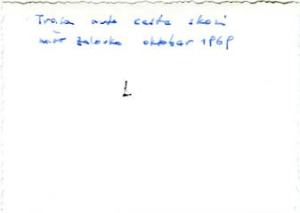 Trasa auto cesta skozi
zalovka oktober 1969
L